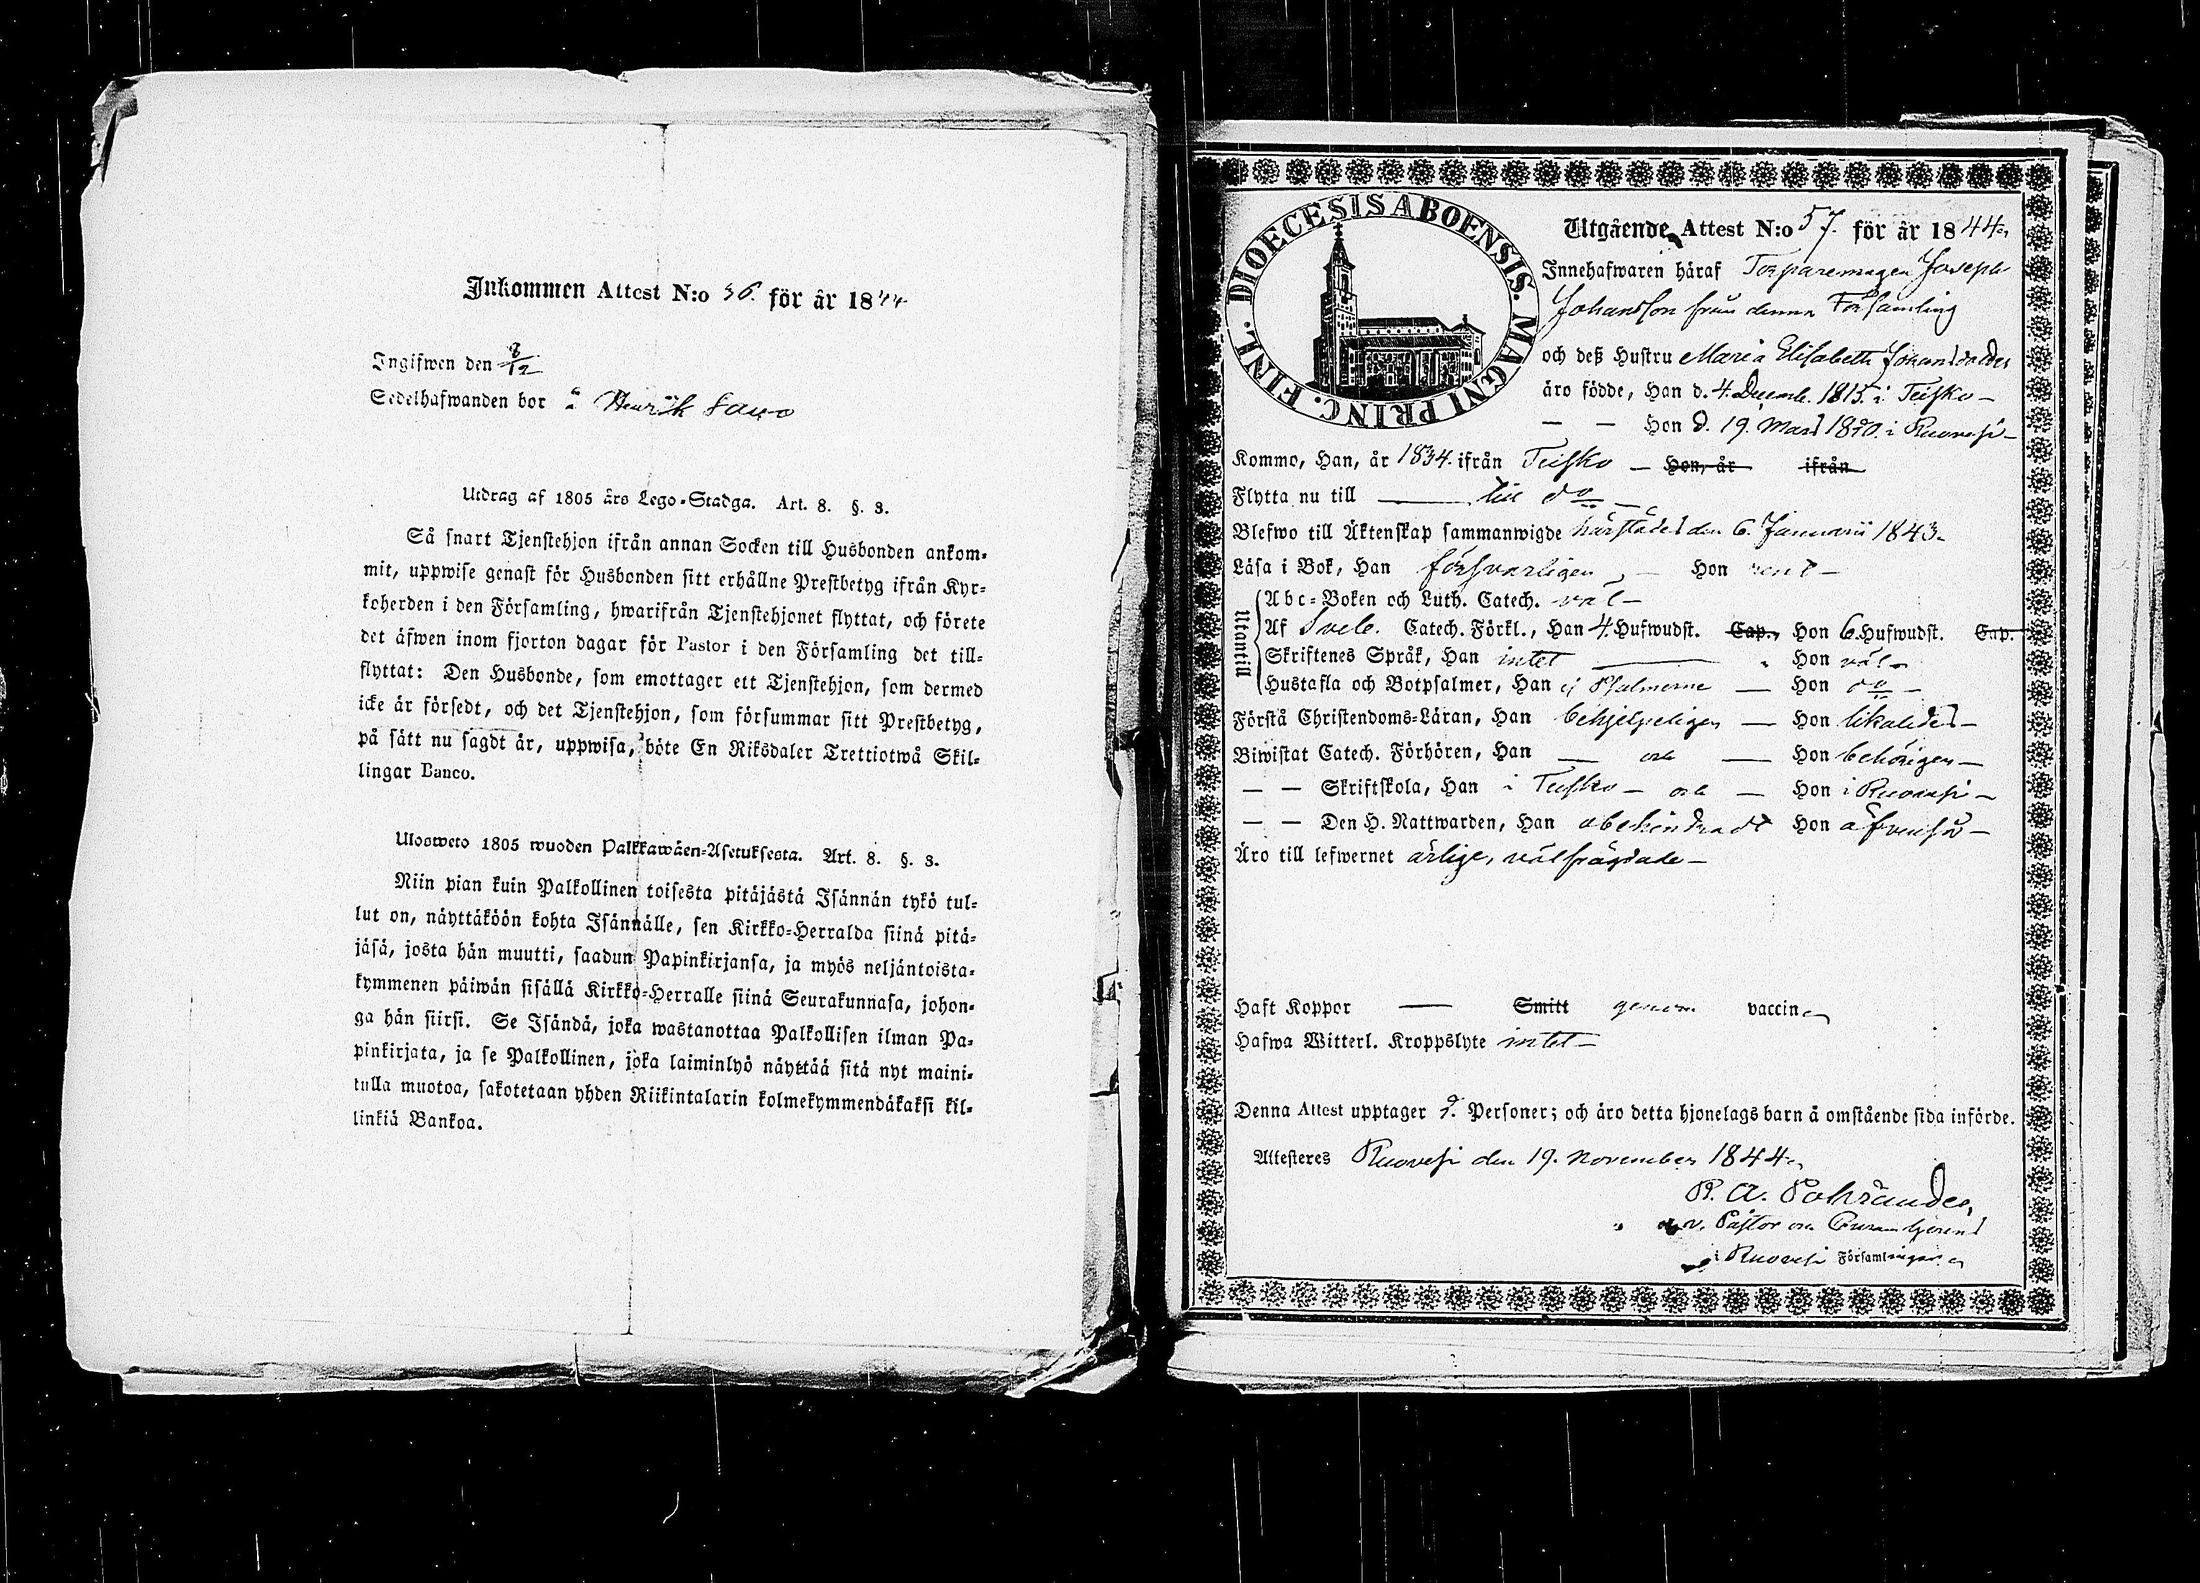 Inkommen Attest N:o 36. för år 1844
Ingifwen den 8/12
Sedelhafwanden bor å Henrik Sawo
Utdrag af 1805 års Lego-Stadga. Art. 8. §. 8.
Så snart Tjenstehjon ifrån annan Socken till Husbonden ankom-
mit, uppwise genast för Husbonden sitt erhållne Prestbetyg ifrån Kyr-
koherden i den Församling, hwarifrån Tjenstehjonet flyttat, och förete
det äfwen inom fjorton dagar för Pastor i den Församling det till-
flyttat: Den Husbonde, som emottager ett Tjenstehjon, som dermed
icke är försedt, och det Tjenstehjon, som försummar sitt Prestbetyg,
på sätt nu sagdt är, uppwisa, böte En Riksdaler Trettiotwå Skil-
lingar Banco.
Ulosweto 1805 wuoden Palkkawäen-Asetuksesta. Art. 8. §. 8.
Niin pian kuin Palkollinen toisesta pitäjästä Isännän tykö tul-
lut on, näyttäköön kohta Isännälle, sen Kirkko-Herralda siinä pitä-
jäsä, josta hän muutti, saadun Papinkirjansa, ja myös neljäntoista-
kymmenen päiwän sisällä Kirkko-Herralle siinä Seurakunnasa, johon-
ga hän siirsi. Se Isändä, joka wastanottaa Palkollisen ilman Pa-
pinkirjata, ja se Palkollinen, joka laiminlyö näyttää sitä nyt maini-
tulla muotoa, sakotetaan yhden Riikintalarin kolmekymmendäkaksi kil-
linkiä Bankoa.
DIOECESIS ABOENSIS. MAGNI PRINC. FINL.
Utgående Attest N:o 57. för år 1844.
Innehafwaren häraf Torparemågen Joseph
Johansson från denna Församling
och deß Hustru Maria Elisabeth Johansdotter
äro födde, Han d. 4. Decemb. 1815. i Teisko –
— — Hon d. 19. Mars 1820. i Ruovesi –
Kommo, Han, år 1834. ifrån Teisko — Hon, år ifrån
Flytta nu till — till do —
Blefwo till Äktenskap sammanwigde härstädes den 6. Januarii 1843.
Läsa i Bok, Han försvarligen — Hon rent –
Utantill
Abc-Boken och Luth. Catech. väl –
Af Sveb. Catech. Förkl., Han 4. Hufwudst. Cap., Hon 6. Hufwudst. Cap.
Skriftenes Språk, Han intet — Hon väl –
Hustafla och Botpsalmer, Han ej Psalmerne — Hon do –
Förstå Christendoms-Läran, Han behjelpeligen — Hon likaledes –
Biwistat Catech. Förhören, Han — och — Hon behörigen –
— — Skriftskola, Han i Teisko – och — Hon i Ruovesi –
— — Den H. Nattwarden, Han obehindradt Hon äfvenså –
Äro till lefwernet ärlige, välfrägdade –
Haft Koppor — Smitt genom vaccin
Hafwa Witterl. Kroppslyte intet –
Denna Attest upptager 2. Personer; och äro detta hjonelags barn å omstående sida införde.
Attesteres Ruovesi den 19. November 1844.
v. Pastor
i Ruovesi Församlingar